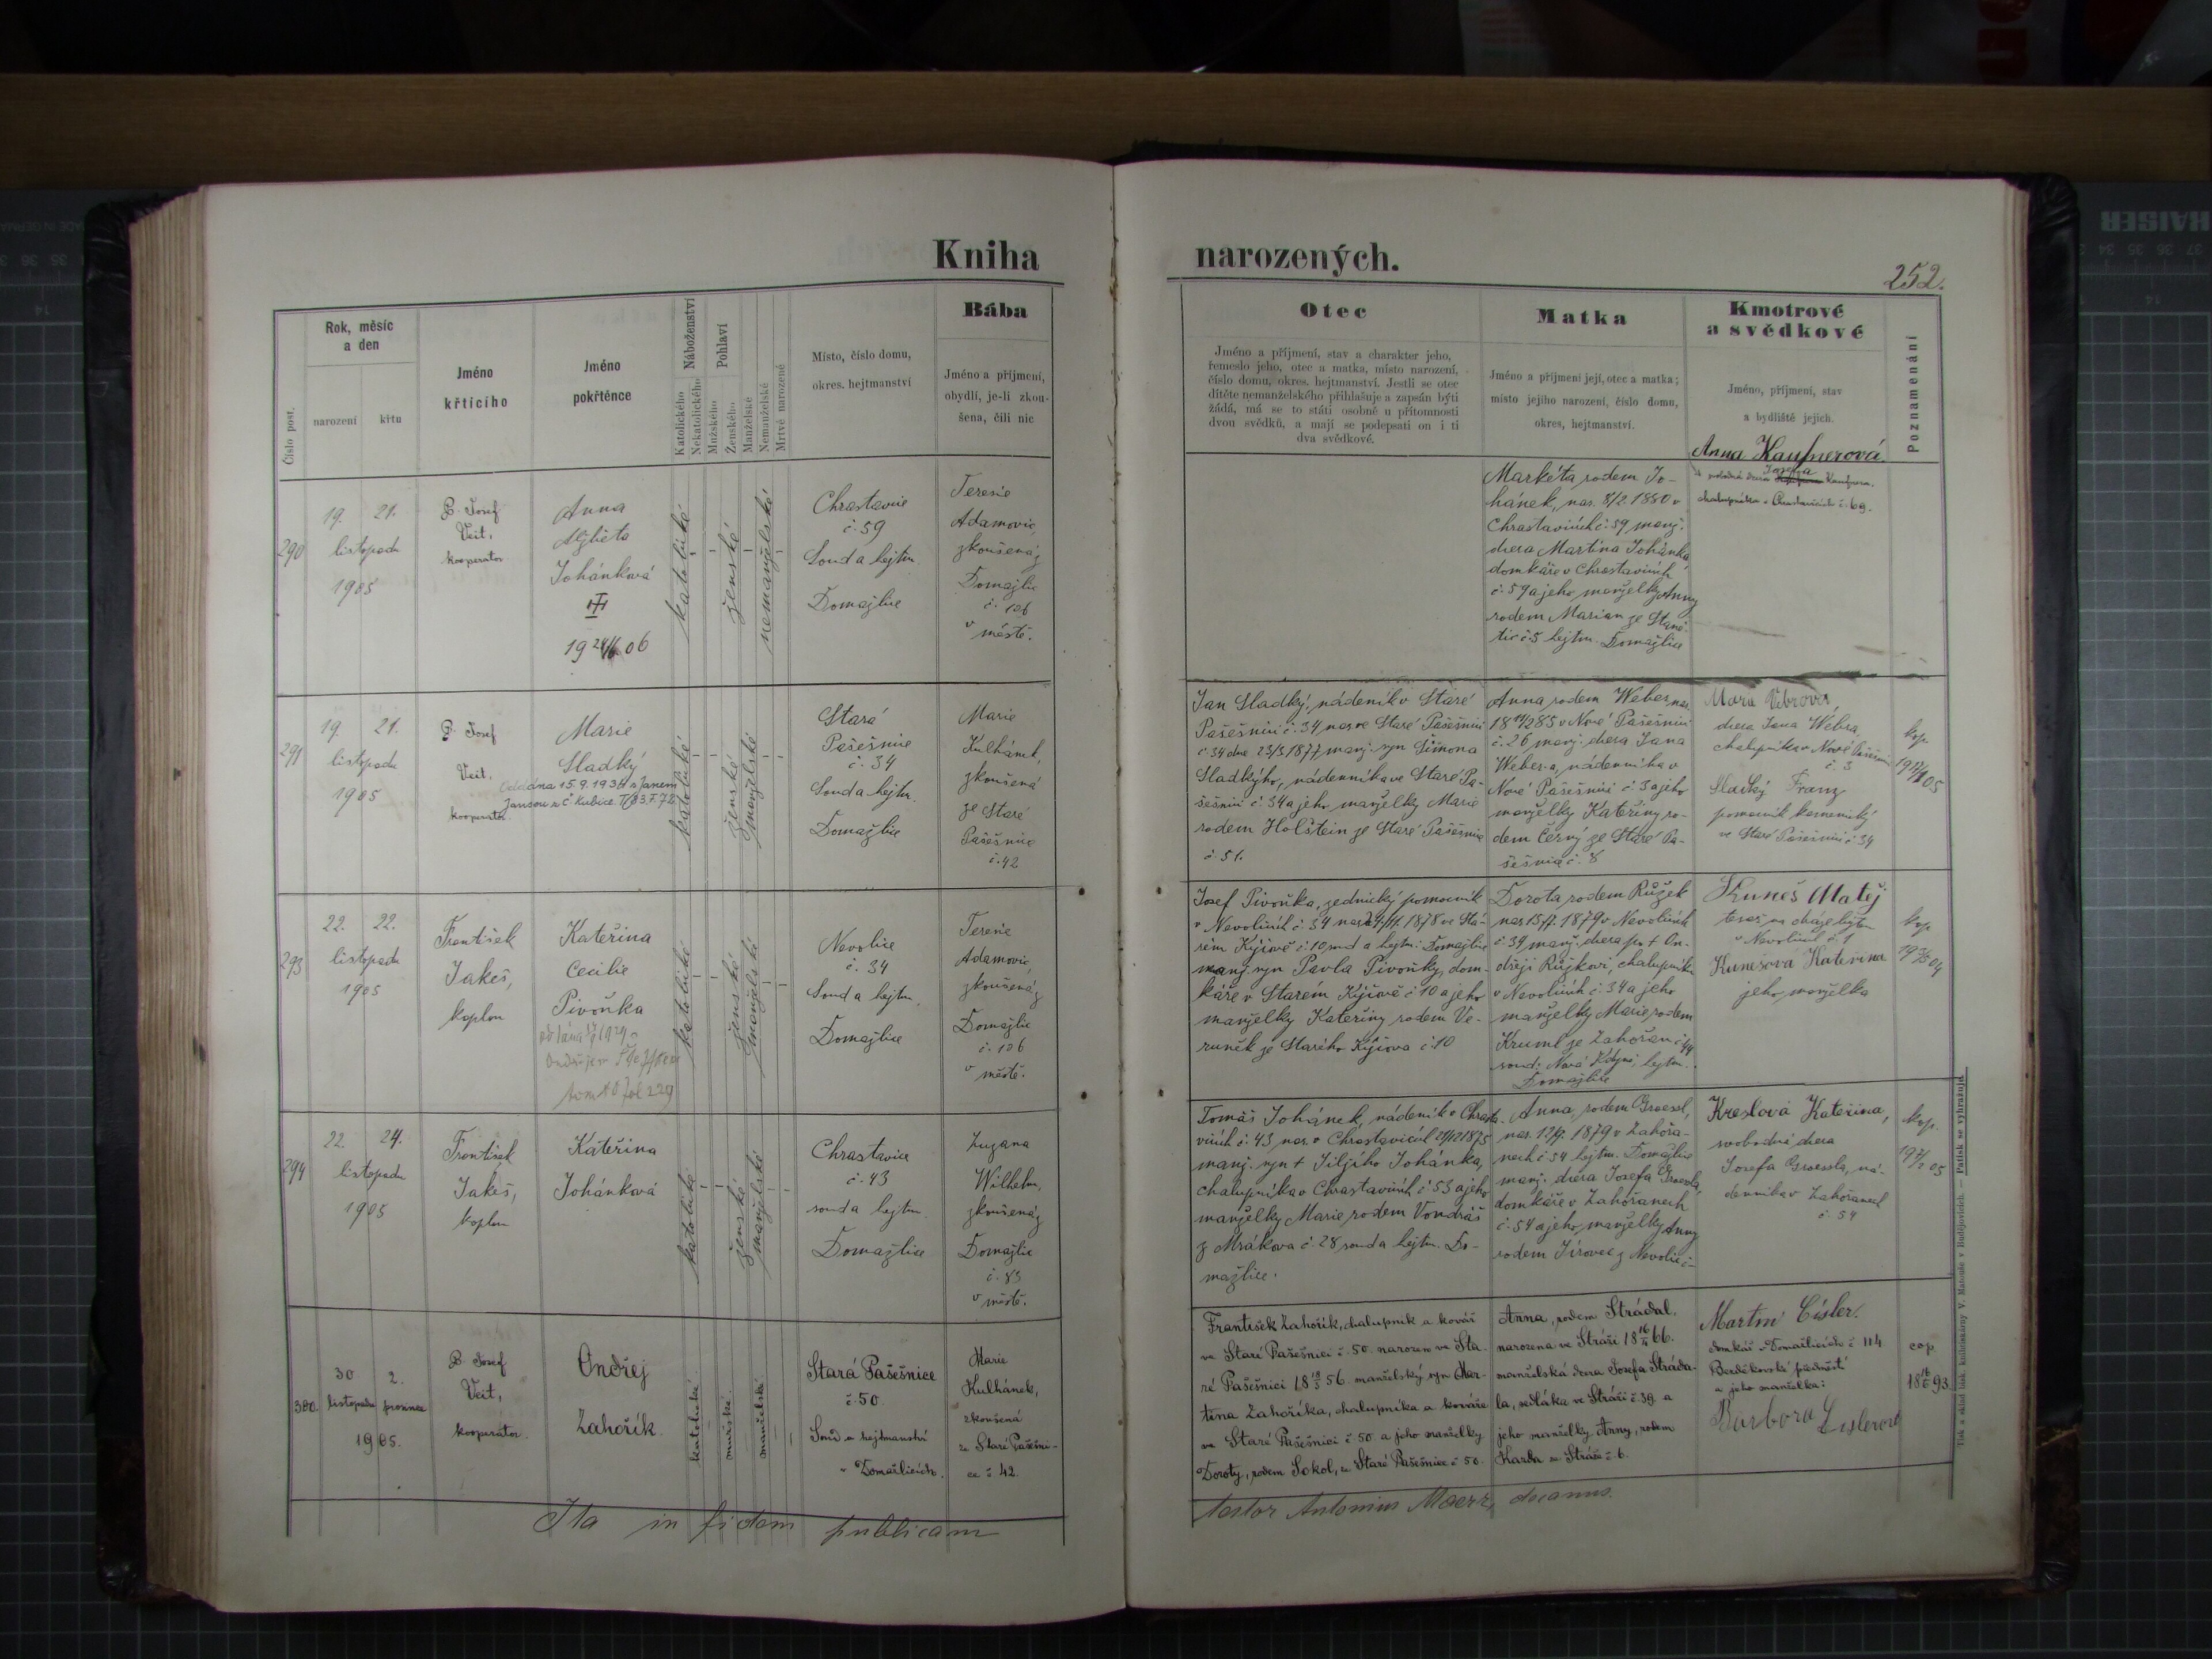 Kniha
narozených.
252.
Číslo post.
Rok, měsíc
a den
narození
křtu
Jméno
křticího
Jméno
pokřtěnce
Náboženství
Katolického
Nekatolického
Pohlaví
Mužského
Ženského
Manželské
Nemanželské
Mrtvě narozené
Místo, číslo domu,
okres. hejtmanství
Bába
Jméno a příjmení,
obydlí, je-li zkou-
šena, čili nic
Otec
Jméno a příjmení, stav a charakter jeho,
řemeslo jeho, otec a matka, místo narození,
číslo domu, okres. hejtmanství. Jestli se otec
dítěte nemanželského přihlašuje a zapsán býti
žádá, má se to státi osobně u přítomnosti
dvou svědků, a mají se podepsati on i ti
dva svědkové.
Matka
Jméno a příjmení její, otec a matka;
místo jejího narození, číslo domu,
okres, hejtmanství.
Kmotrové
a svědkové
Jméno, příjmení, stav
a bydliště jejich.
Poznamenání
290
19. 21.
listopadu
1905
P. Josef
Veit,
kooperator
Anna
Alžběta
Johánková
katolické
ženské
nemanželské
Chrastavice
č. 59
Soud a hejtm.
Domažlice
Teresie
Adamovic,
zkoušená z
Domažlic
č. 106
v městě.
Markéta rodem Jo-
hánek, nar. 8/2. 1880 v
Chrastavicích č. 59, manž.
dcera Martina Johánka,
domkáře v Chrastavicích
č. 59 a jeho manželky Anny
rodem Marian ze Staně-
tic č. 5 hejtm. Domažlice
Anna Kaufnerová.
Josefa
chalupníka v Chrastavicích č. 69.
291
19. 21.
listopadu
1905
P. Josef
Veit,
kooperator.
Marie
Sladký
Oddána 15. 9. 1934 s Janem
katolické
ženské
manželské
Stará
Pašešnice
č. 34
Soud a hejtm.
Domažlice
Marie
Kulhánek,
zkoušená
ze Staré
Pašešnice
č. 42
Jan Sladký, nádeník v Staré
Pašešnici č. 34 nar. ve Staré Pašešnici
č. 34 dne 23/3. 1877, manž. syn Šimona
Sladkýho, nádenníka ve Staré Pa-
šešnici č. 34 a jeho manželky Marie
rodem Holštein ze Staré Pašešnice
č. 51.
Anna rodem Weber, nar.
v Nové Pašešnici
č. 26 manž. dcera Jana
Weber-a, nádenníka v
Nové Pašešnici č. 3 a jeho
manželky Kateřiny ro-
dem Černý ze Staré Pa-
šešnice č. 8
dcera Jana Webra,
chalupníka v Nové Pašešnici
č. 3
Sladký Franz
pomocník kamenický
ve Staré Pašešnici č. 34
kop.
293
22. 22.
listopadu
1905
František
Jakeš,
kaplan
Kateřina
Cecilie
Pivoňka
katolické
ženské
manželské
Nevolice
č. 34
Soud a hejtm.
Domažlice
Teresie
Adamovic,
zkoušená z
Domažlic
č. 106
v městě.
Josef Pivoňka, zednický pomocník
v Nevolicích č. 34 1878 ve Sta-
rém Kýčově č. 10 soud a hejtm. Domažlice
manž. syn Pavla Pivoňky, dom-
káře v Starém Kýčově č. 10 a jeho
manželky Kateřiny rodem Ve-
runěk ze Starého Kýčova č. 10
Dorota rodem Růžek
1879 v Nevolicích
č. 34 manž. dcera po † On-
dřeji Růžkovi, chalupníku
v Nevolicích č. 34 a jeho
manželky Marie rodem
Kruml ze Zahořan č. 44
soud: Nová Kdyně, hejtm.
Domažlice
Kuneš Matěj
v Nevolicích č. 1
Kunešová Kateřina
jeho manželka
kop.
294
22. 24.
listopadu
1905
František
Jakeš,
kaplan
Kateřina
Johánková
katolické
ženské
manželské
Chrastavice
č. 43
soud a hejtm.
Domažlice
Zuzana
Wilhelm,
zkoušená z
Domažlic
č. 83
v městě.
Tomáš Johánek, nádeník v Chrasta-
vicích č. 43, nar. v Chrastavicích 21/12 1875
manž. syn † Jiljího Johánka,
chalupníka v Chrastavicích č. 53 a jeho
manželky Marie rodem Vondráš
z Mrákova č. 28 soud a hejtm. Do-
mažlice.
Anna, rodem Groessl,
nar. 12/9. 1879 v Zahořa-
nech č. 54 hejtm. Domažlice
manž. dcera Josefa Groessla,
domkáře v Zahořanech
č. 54 a jeho manželky Anny
rodem Jírovec z Nevolic
Kreslová Kateřina,
svobodná dcera
Josefa Groessla, ná-
denníka v Zahořanech
č. 54
kop.
300.
30 2.
listopadu prosince
1905.
P. Josef
Veit,
kooperátor.
Ondřej
Zahořík.
katolické
mužské.
manželské
Stará Pašešnice
č. 50.
Soud a hejtmanství
v Domažlicích.
Marie
Kulhánek,
zkoušená
ze Staré Pašešni-
ce č. 42.
František Zahořík, chalupník a kovář
ve Staré Pašešnici č. 50. narozen ve Sta-
ré Pašešnici 18 18/5 56. manželský syn Mar-
tina Zahoříka, chalupníka a kováře
ve Staré Pašešnici č. 50. a jeho manželky
Doroty, rodem Sokol, ze Staré Pašešnice č. 50.
Anna, rodem Strádal,
narozena ve Stráži 66.
manželská dcera Josefa Stráda-
la, sedláka ve Stráži č. 39. a
jeho manželky Anny, rodem
Kazda ze Stráže č. 6.
Martin Cisler.
domkář v Domažlicích č. 114
předměstí
a jeho manželka:
Barbora Cislerová
cop.
Ita in fidem publicam
testor Antonius Maerz, decanus.
Tisk a sklad tisk. knihtiskárny V. Matouše v Budějovicích. — Patisk se vyhražuje.
KAISER